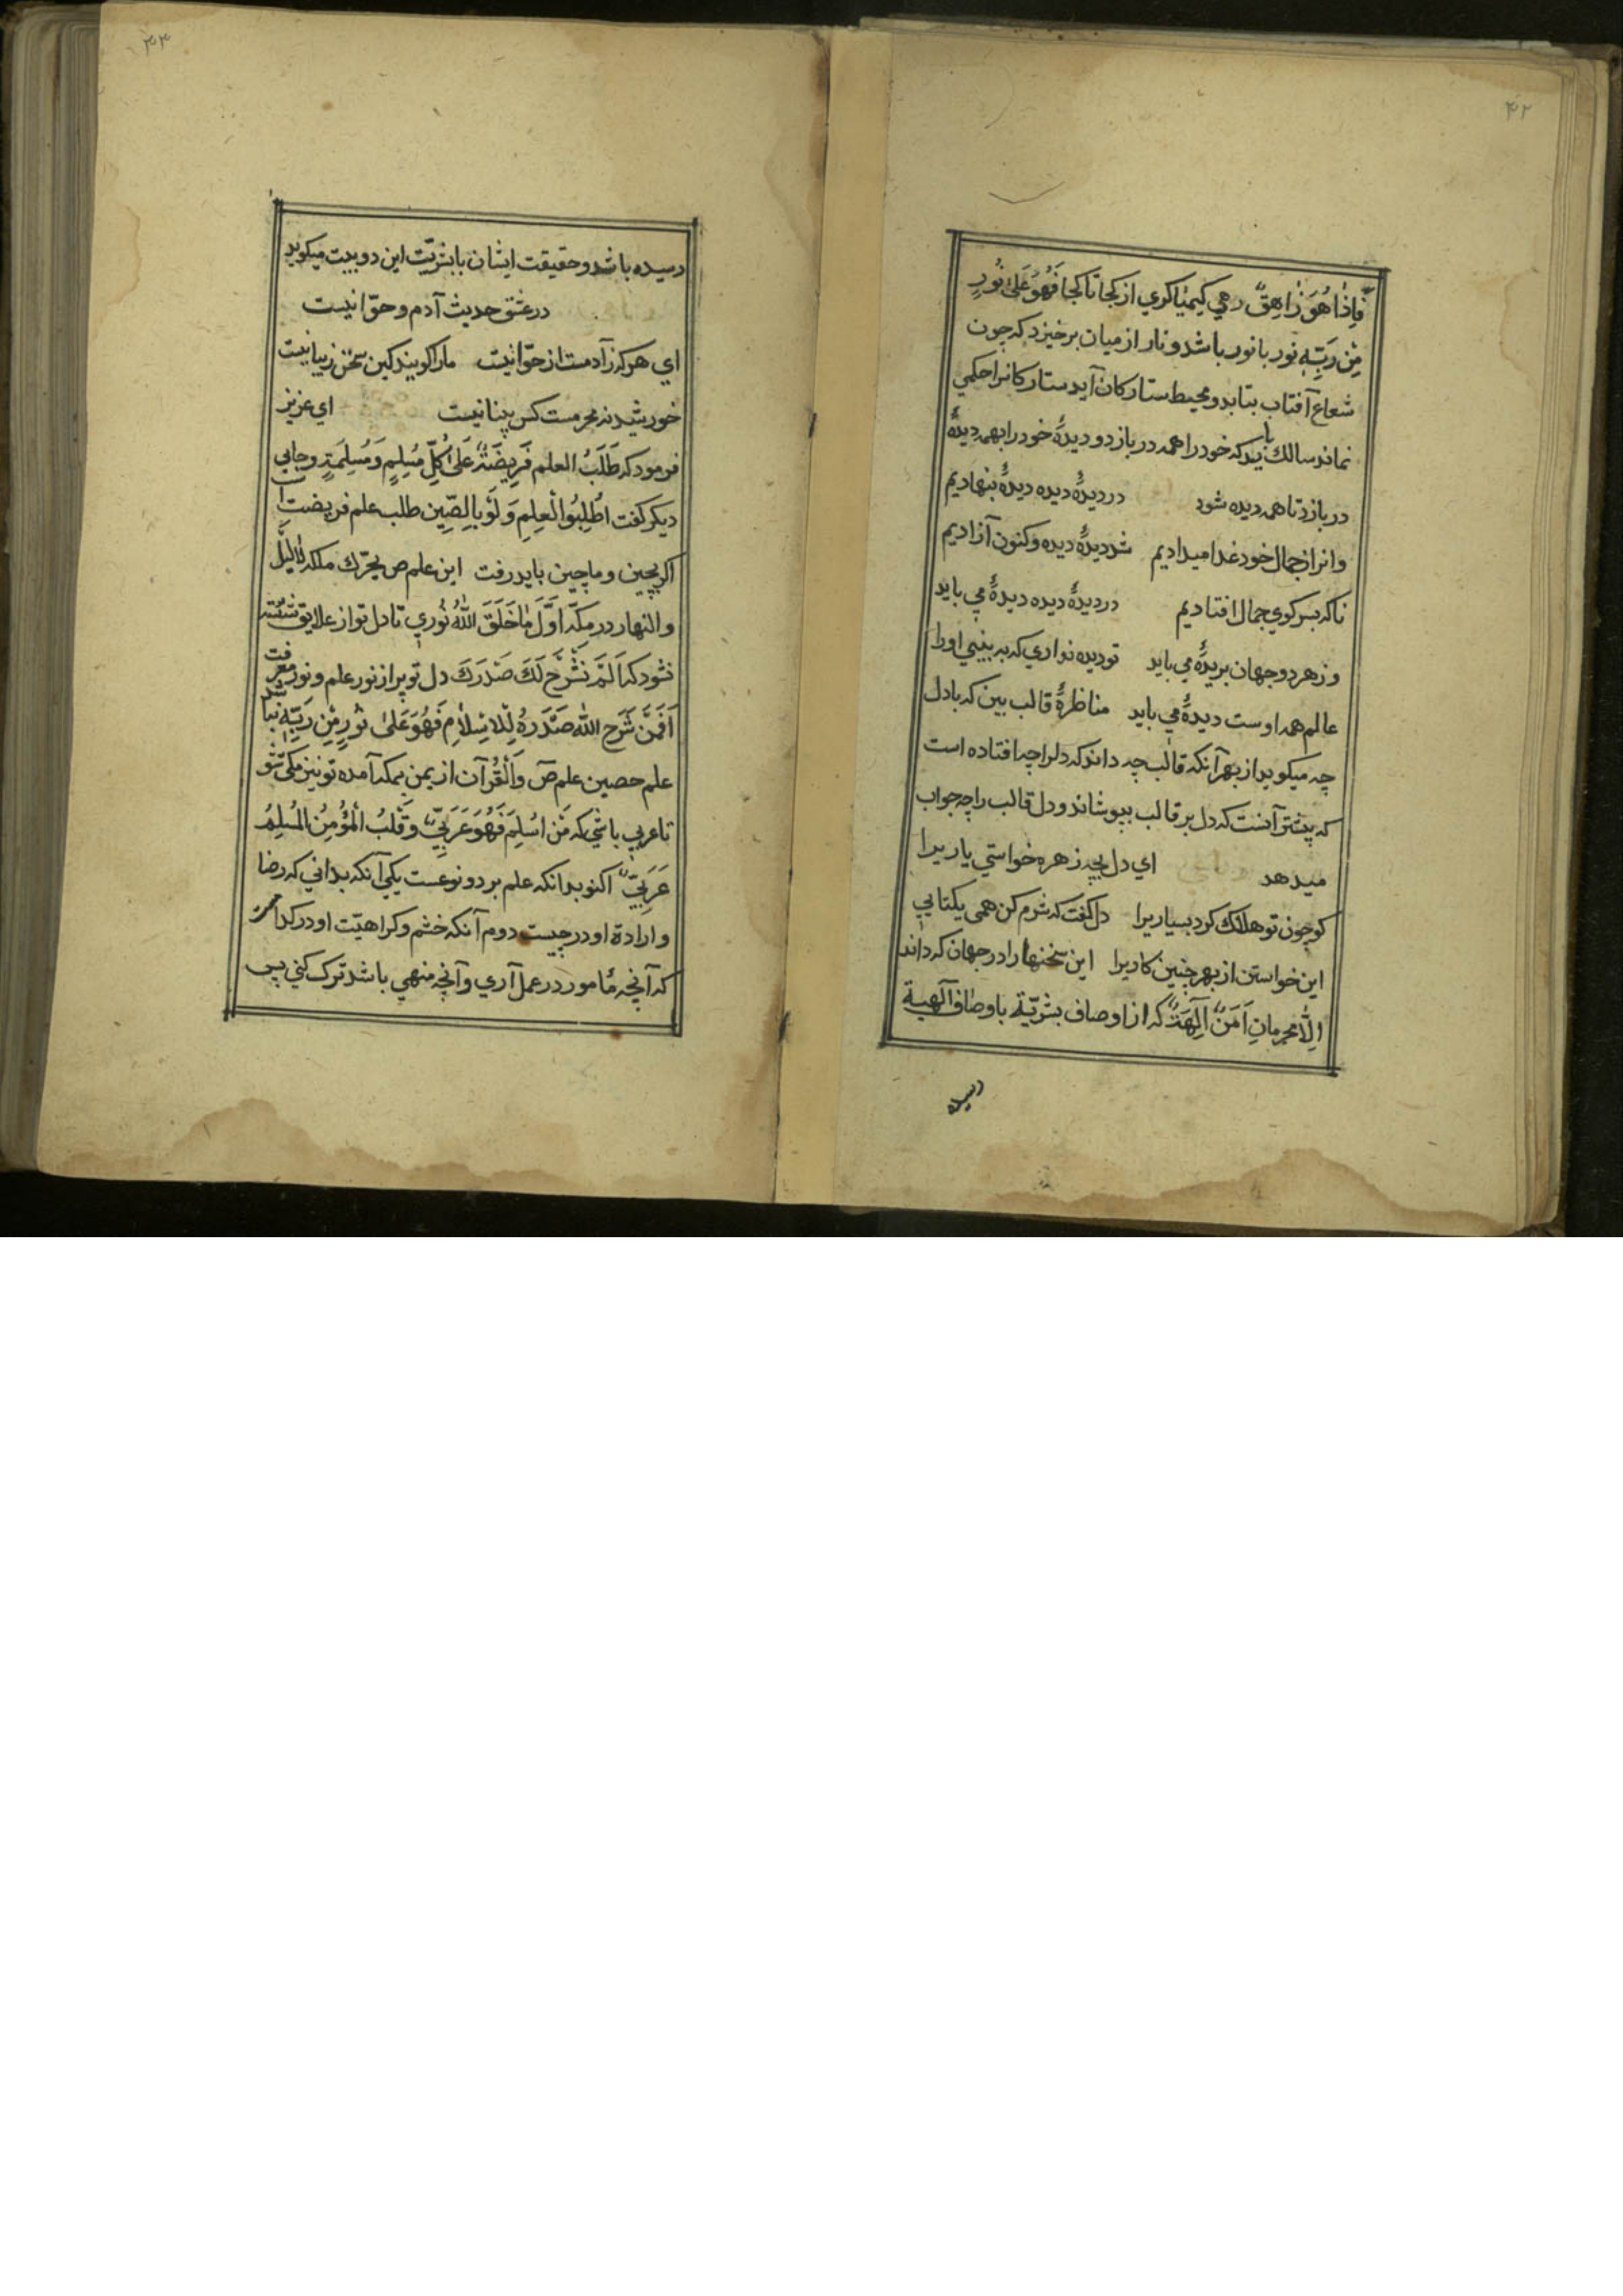 ۴۲
فَاِذَا هُوَ زَاهِقٌ رهي كيميا كري از كجا تا كجا فَهُوَ عَلىٰ نُورٍ
مِن رَبِّهِ نور با نور باشد و نار از ميان برخيزد كه چون
شعاع آفتاب بتابد و محيط ستاركان آيد ستاركانرا حكمي
نماند سالك بايد كه خود را همه دربازد و ديدۀ خود را بهمه ديدۀ
دربازد تا همه ديده شود در ديدۀ ديده ديدۀ بنهاديم
وانرا ز جمال خود غدا ميداديم شد ديدۀ ديده و كنون آزاديم
ناكه بسر كوي جمال افتاديم در ديدۀ ديده ديدۀ مي بايد
وز هر دو جهان بريدۀ مي بايد تو ديده نداري كه به بيني او را
عالم همه اوست ديدۀ مي بايد مناظرۀ قالب بين كه با دل
چه ميكويد از بهر آنكه قالب چه داند كه دلرا چه افتاده است
كه پيشتر آنست كه دل بر قالب بپوشاند و دل قالب را چه جواب
ميدهد اي دل بچه زهره خواستي ياريرا
كو چون تو هلاك كرد بسياريرا دل كفت كه شرم كن همي يكتايي
اين خواستن از بهر چنين كاريرا اين سخنها را در جهان كه داند
اِلّا محرمانِ اَمَنٌ اَلِهَةٌ كه از اوصاف بشريّة باوصاف الهية
رسيده
۴۳
رسيده باشد و حقيقت ايشان با بشريّت اين دو بيت ميكويد
در عشق حديث آدم و حوّا نيست
اي هر كه ز آدمست از حوّا نيست ما را كويند كين سخن زيبا نيست
خورشيد نه مجرمست كس بينا نيست اي عزيز
فرمود كه طَلَبُ العلم فَرِيضَةٌ عَلىٰ كُلِّ مُسْلِمٍ وَ مُسْلِمَةٍ و جايي
ديكر كفت اُطْلِبُوا الْعِلمِ وَ لَوْ بِالصِّين طلب علم فريضت است
اكر بچين و ماچين بايد رفت اين علم ص بحرك ملكه ناليل
والنهار در مكّه اَوَّلَ مَا خَلَقَ اللّٰهُ نُوري تا دل تو از علايق شسته
نشود كه اَلَمْ نَشْرَحْ لَكَ صَدْرَكَ دل تو پر از نور علم و نور معرفت
اَفَمَنْ شَرَحَ اللّٰه صَدْرَهُ لِلْاسْلامِ فَهُوَ عَلىٰ نورٍ مِن رَبِّهِ نباشد
علم حصين علم ص وَالْقُرْآن از يمن بمكه آمده تو نيز مكي شو
تا عربي باشي كه مَنْ اَسْلِمَ فَهُوَ عَرَبِيٌّ وَ قَلْبُ الْمُؤْمِنُ الْمُسْلِمُ
عَرَبِيٌّ اكنو بدانكه علم بر دو نوعست يكي آنكه بداني كه رضا
و ارادة او در چيست دوم آنكه خشم و كراهيّت او در كدامست
كه آنچه مامور در عمل آري و آنچه منهي باشد ترك كني پس